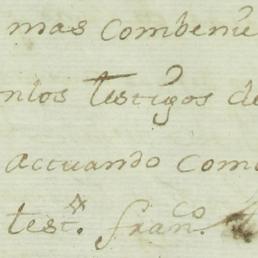 mas combene
nlos testigos de
actuando com
test.^s fran.^co